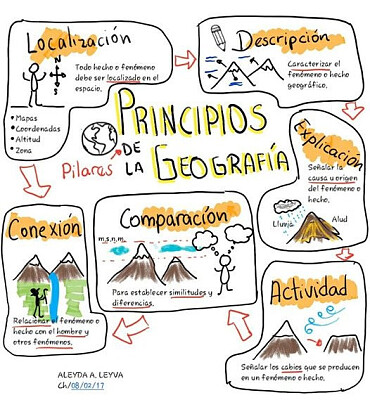 PRINCIPIOS
DE
LA GEOGRAFÍA
Pilares
Localización
Todo hecho o fenómeno
debe ser localizado en el
espacio.
• Mapas
• Coordenadas
• Altitud
• Zona
Descripción
Caracterizar el
fenómeno o hecho
geográfico.
Explicación
Señalar la
causa u origen
del fenómeno o
hecho.
Lluvia
Alud
Actividad
Señalar los cabios que se producen
en un fenómeno o hecho.
Comparación
m.s.n.m.
Para establecer similitudes y
diferencias.
Conexión
Relacionar el fenómeno o
hecho con el hombre y
otros fenómenos.
ALEYDA A. LEYVA
Ch/08/02/17